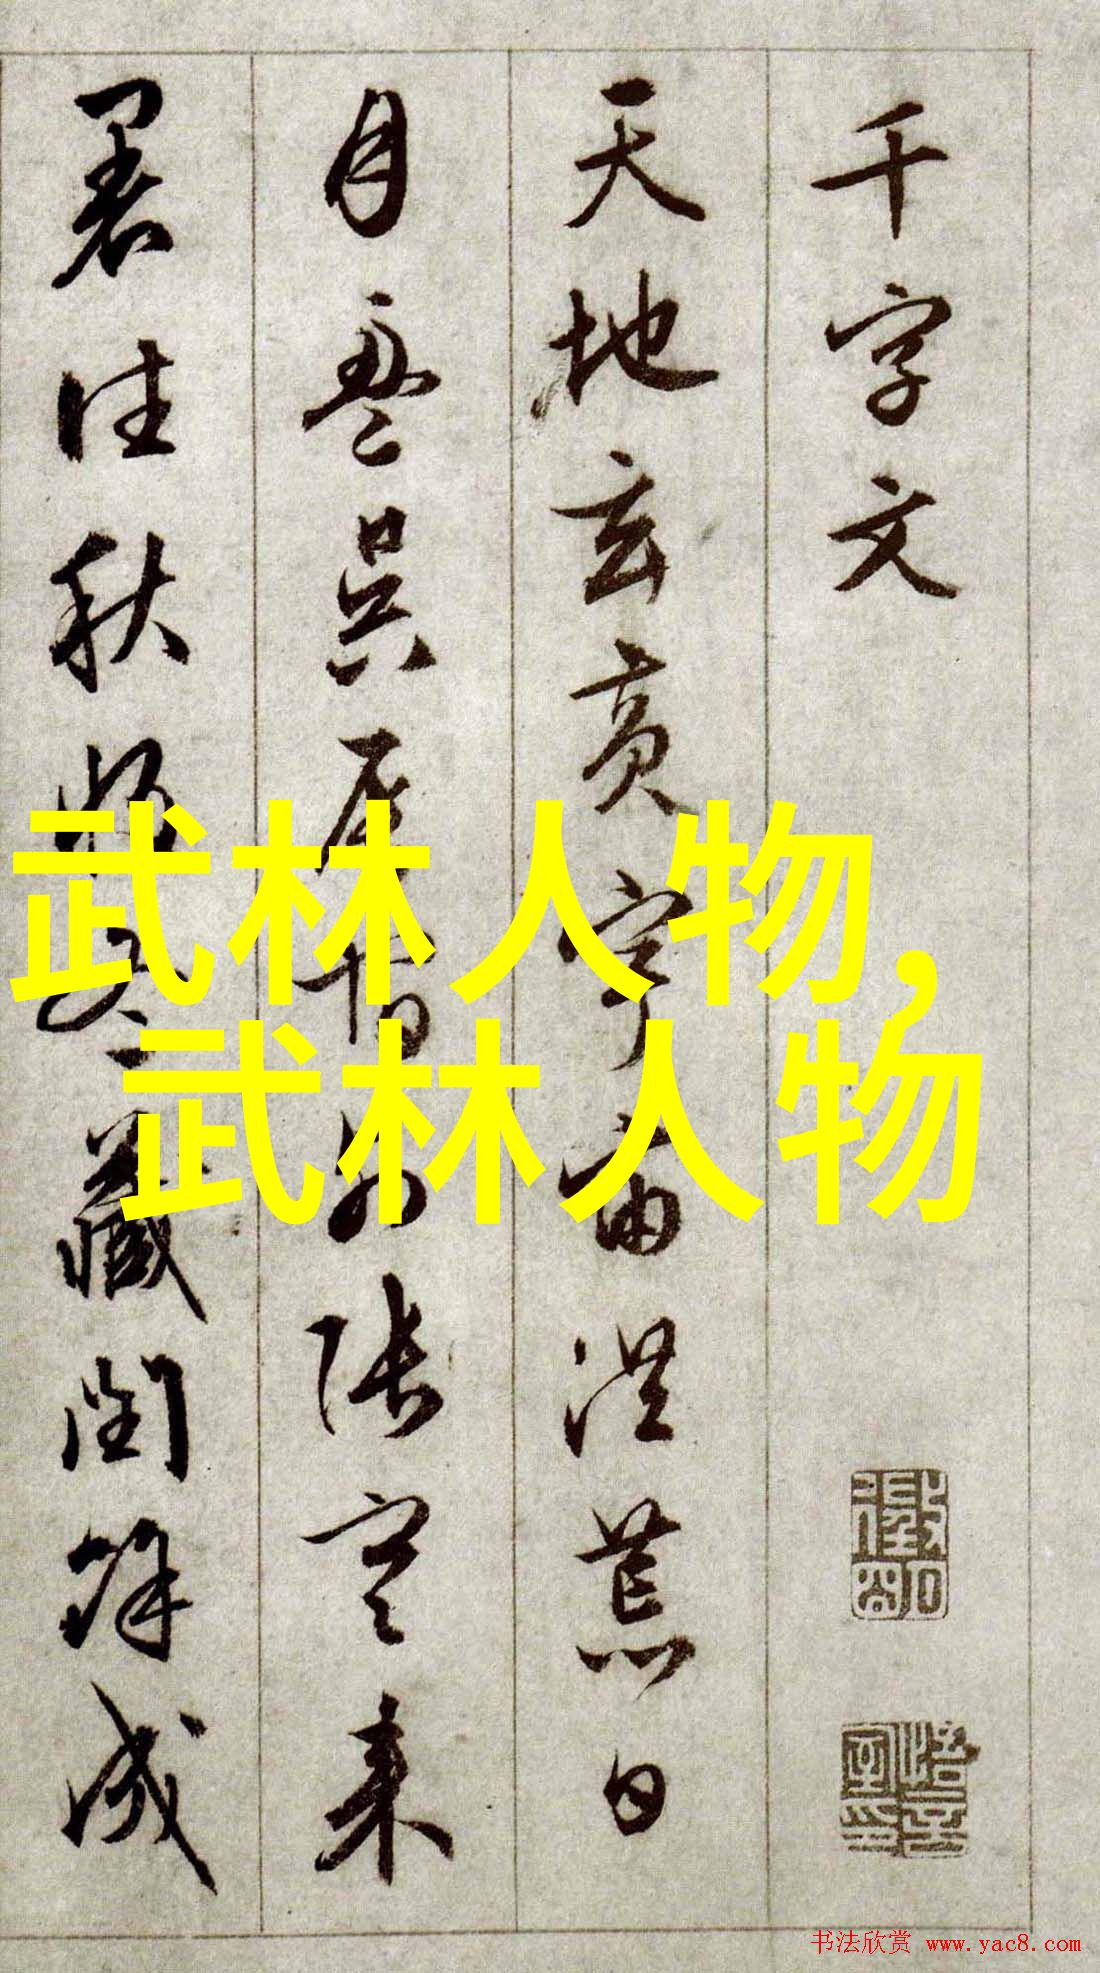 千字文
天地玄黄宇宙洪荒日
月盈昃辰宿列張寒来
暑往秋收冬藏閏餘成
武林人物,
武林人物
书法欣赏 www.yac8.com